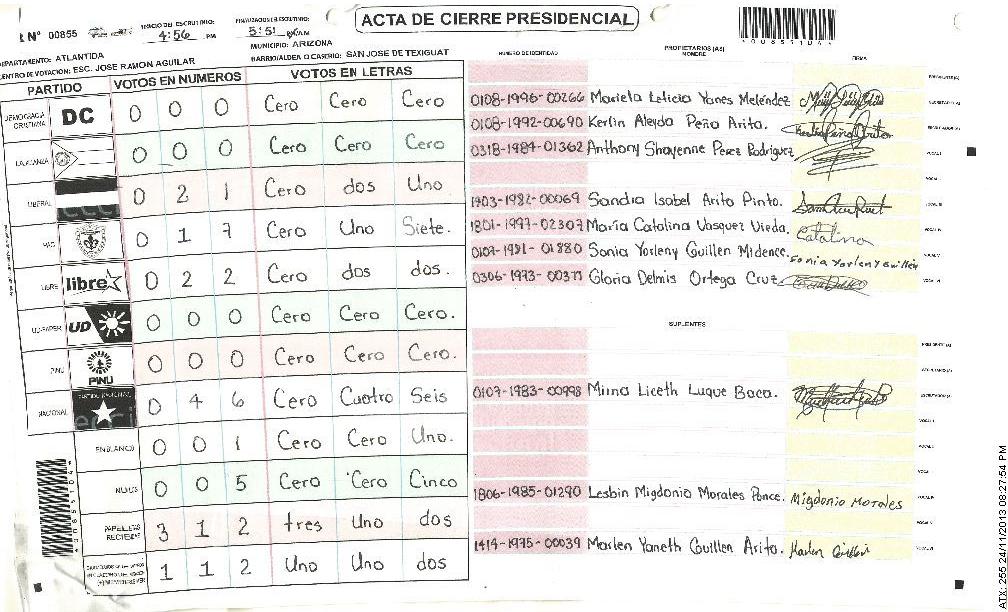 Nº 00855
INICIO DEL ESCRUTINIO: 4:56 PM
FINALIZACION ESCRUTINIO: 5:51
ACTA DE CIERRE PRESIDENCIAL
DEPARTAMENTO: ATLANTIDA
MUNICIPIO: ARIZONA
CENTRO DE VOTACION: ESC. JOSE RAMON AGUILAR
BARRIO/ALDEA O CASERIO: SAN JOSE DE TEXIGUAT
NUMERO DE IDENTIDAD PROPIETARIOS (AS) FIRMA
PARTIDO VOTOS EN NUMEROS VOTOS EN LETRAS
DEMOCRACIA CRISTIANA DC 0 0 0 Cero Cero Cero
LA ALIANZA 0 0 0 Cero Cero Cero
LIBERAL 0 2 1 Cero dos Uno
PAC 0 1 7 Cero Uno Siete.
LIBRE libre 0 2 2 Cero dos dos.
UD-FAPER UD 0 0 0 Cero Cero Cero.
PINU PINU 0 0 0 Cero Cero Cero.
NACIONAL PARTIDO NACIONAL 0 4 6 Cero Cuatro Seis
EN BLANCO 0 0 1 Cero Cero Uno.
NULOS 0 0 5 Cero Cero Cinco
PAPELETAS RECIBIDAS 3 1 2 tres Uno dos
1 1 2 Uno Uno dos
0108-1996-00266 Mariela Leticia Yanes Meléndez
0108-1992-00690 Kerlin Aleyda Peña Arita.
0318-1984-01362 Anthony Shayenne Perez Rodriguez
1903-1982-00069 Sandra Isabel Arita Pinto.
1801-1997-02307 Maria Catalina Vasquez Ueda. Catalina
0107-1991-01880 Sonia Yorleny Guillen Midence. Sonia Yorleny Guillén
0306-1973-00377 Gloria Delmis Ortega Cruz
SUPLENTES
0107-1983-00998 Mirna Liceth Luque Baca.
1806-1985-01290 Lesbin Migdonio Morales Ponce. Migdonio Morales
1414-1975-00039 Marlen Yaneth Guillen Arita. Marlen Guillen
ATX. 255 24/11/2013 08:27:54 PM